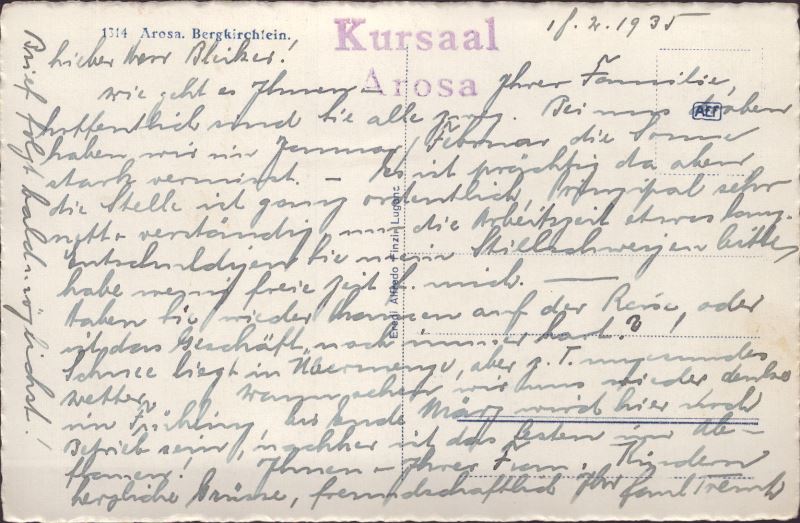 1314 Arosa. Bergkirchlein.
Kursaal
Arosa
18.2.1935
Lieber Herr Bleiker!
Wie geht es Ihnen – Ihrer Familie,
hoffentlich sind Sie alle zweg. Bei uns oben
haben wir im Januar/Februar die Sonne
stark vermisst. – Es ist prächtig da oben
die Stelle ist ganz ordentlich, Prinzipal sehr
nett – verständig, nur die Arbeitszeit etwas lang.
Entschuldigen Sie mein Stillschweigen bitte,
habe wenig freie Zeit f. mich. —
Haben Sie wieder auf der Reise, oder
ist das Geschäft noch immer hart? !
Schnee liegt in Übermenge, aber z. T. ungesundes
Wetter. Wann sehen wir uns wieder denke
im Frühling bis Ende März wird hier noch
Betrieb sein, nachher ist das Besten im Ab-
flauen! Ihnen – Ihrer Frau, Kindern
herzliche Grüsse, freundschaftlich Ihr
Brief folgt baldmöglichst!
AEF
Eredi Alfredo Finzi, Lugano